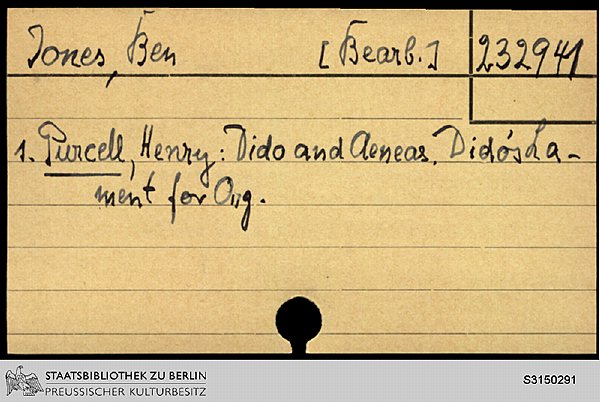 Jones, Ben [Bearb.] 232941
1. Purcell, Henry: Dido and Aeneas. Dido's La-
ment for Org.
STAATSBIBLIOTHEK ZU BERLIN
PREUSSISCHER KULTURBESITZ
S3150291